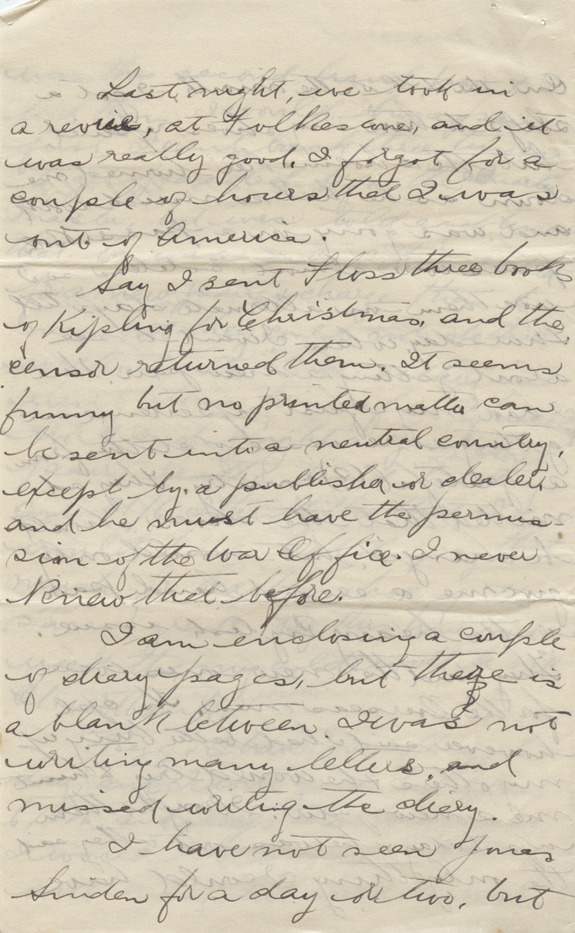 Last night, we took in
a revue, at Folkestone, and it
was really good. I forgot for a
couple of hours that I was
out of America.
Say I sent Floss three books
of Kipling for Christmas, and the
censor returned them. It seems
funny but no printed matter can
be sent into a neutral country,
except by a publisher or dealer,
and he must have the permis-
sion of the War Office. I never
knew that before.
I am enclosing a couple
of diary pages, but there is
a blank between. I was not
writing many letters, and
missed writing the diary.
I have not seen Jones
for a day or two, but